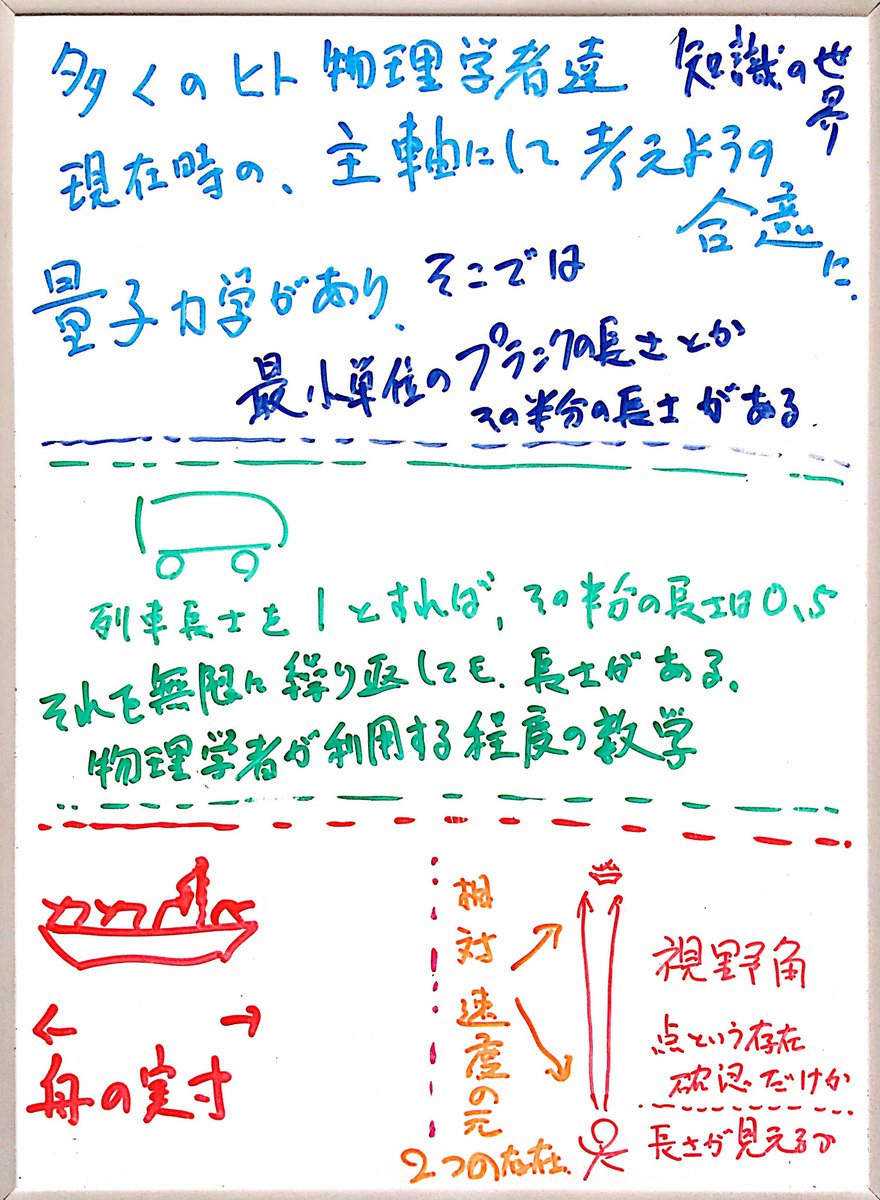 多くのヒト物理学者達 知識の世界
現在時の、主軸にして考えようの
合意に
量子力学があり、そこでは
最小単位のプランクの長さとか
その半分の長さがある
列車長さを1とすれば、その半分の長さは0、5
それを無限に繰り返しても、長さがある、
物理学者が利用する程度の数学
舟の実寸
相対速度の元
2つの存在、
視野角
点という存在
確認だけか
長さが見えるか